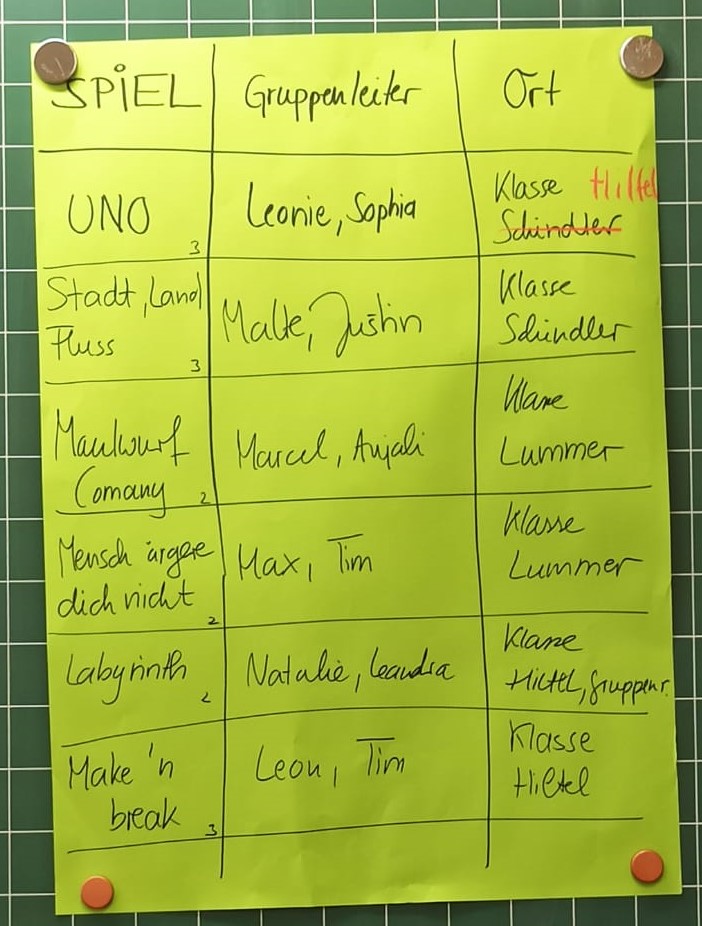 SPiEL Gruppenleiter Ort
UNO 3 Leonie, Sophia Klasse Hiltel
Schindler
Stadt, Land
Fluss 3 Malte, Justin Klasse
Schindler
Maulwurf
Comany 2 Marcel, Anjali Klasse
Lummer
Mensch ärgere
dich nicht 2 Max, Tim Klasse
Lummer
Labyrinth 2 Natalie, Leandra Klasse
Hiltel, Gruppenr.
Make 'n
break 3 Leon, Tim Klasse
Hiltel